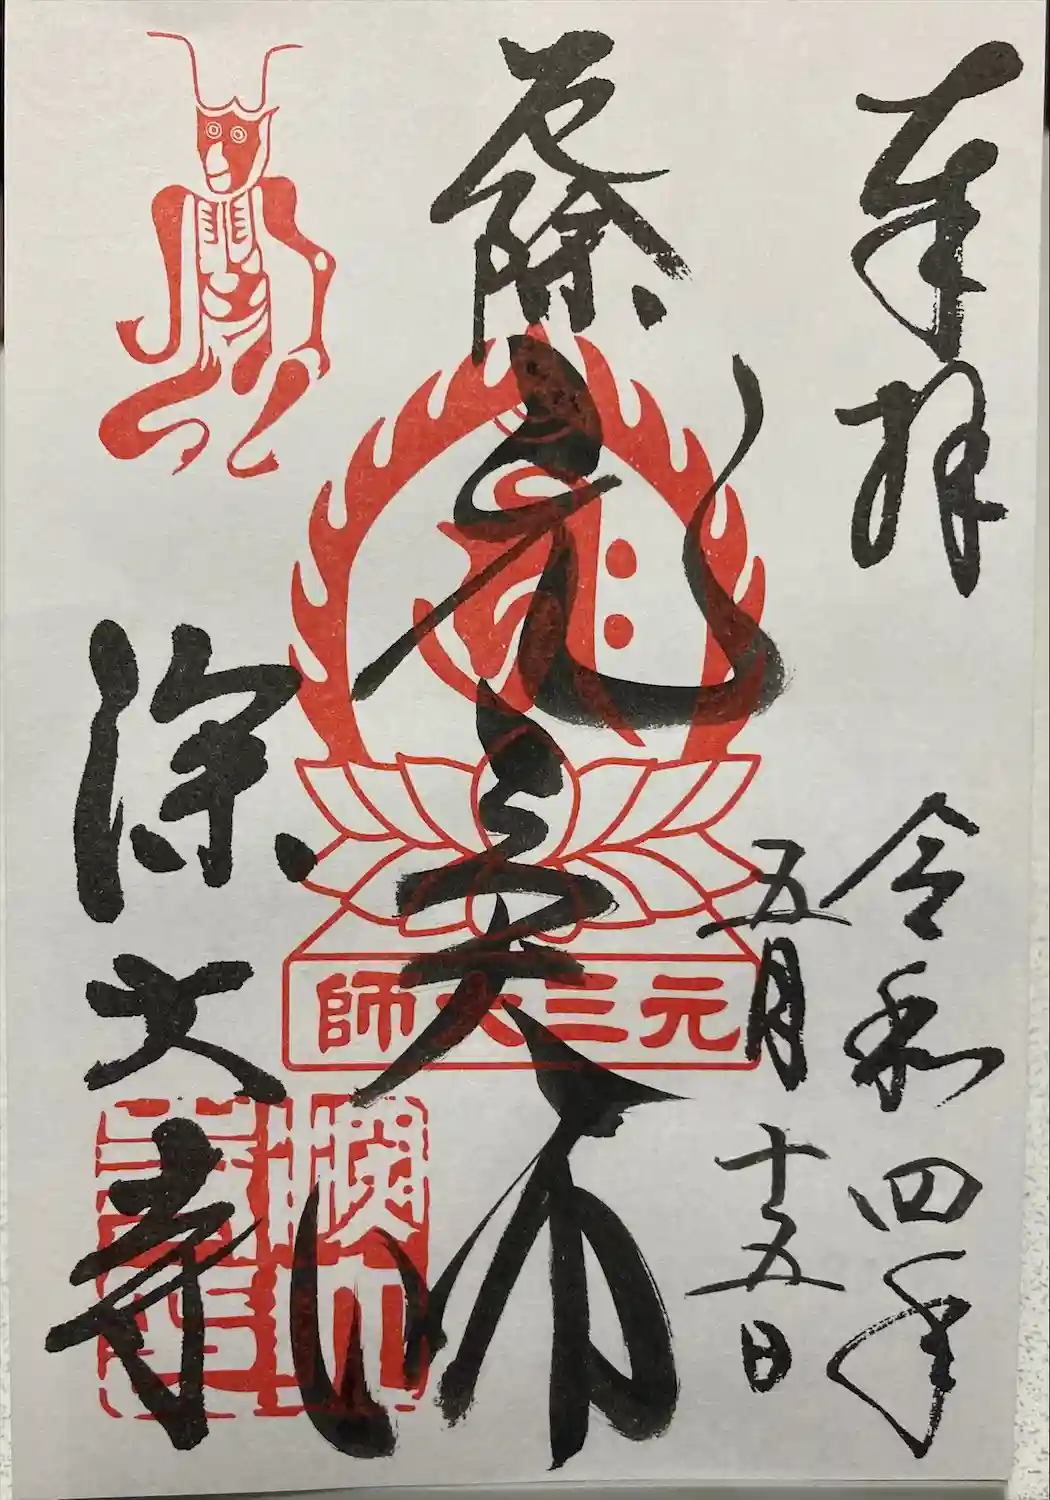 奉拝
令和四年
五月十五日
厄除元三大師
元三大師
深大寺